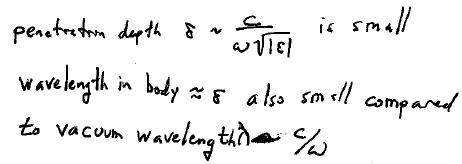 penetration depth δ ~ c/(ω√|ε|) is small
wavelength in body ≈ δ also small compared
to vacuum wavelength λ c/ω